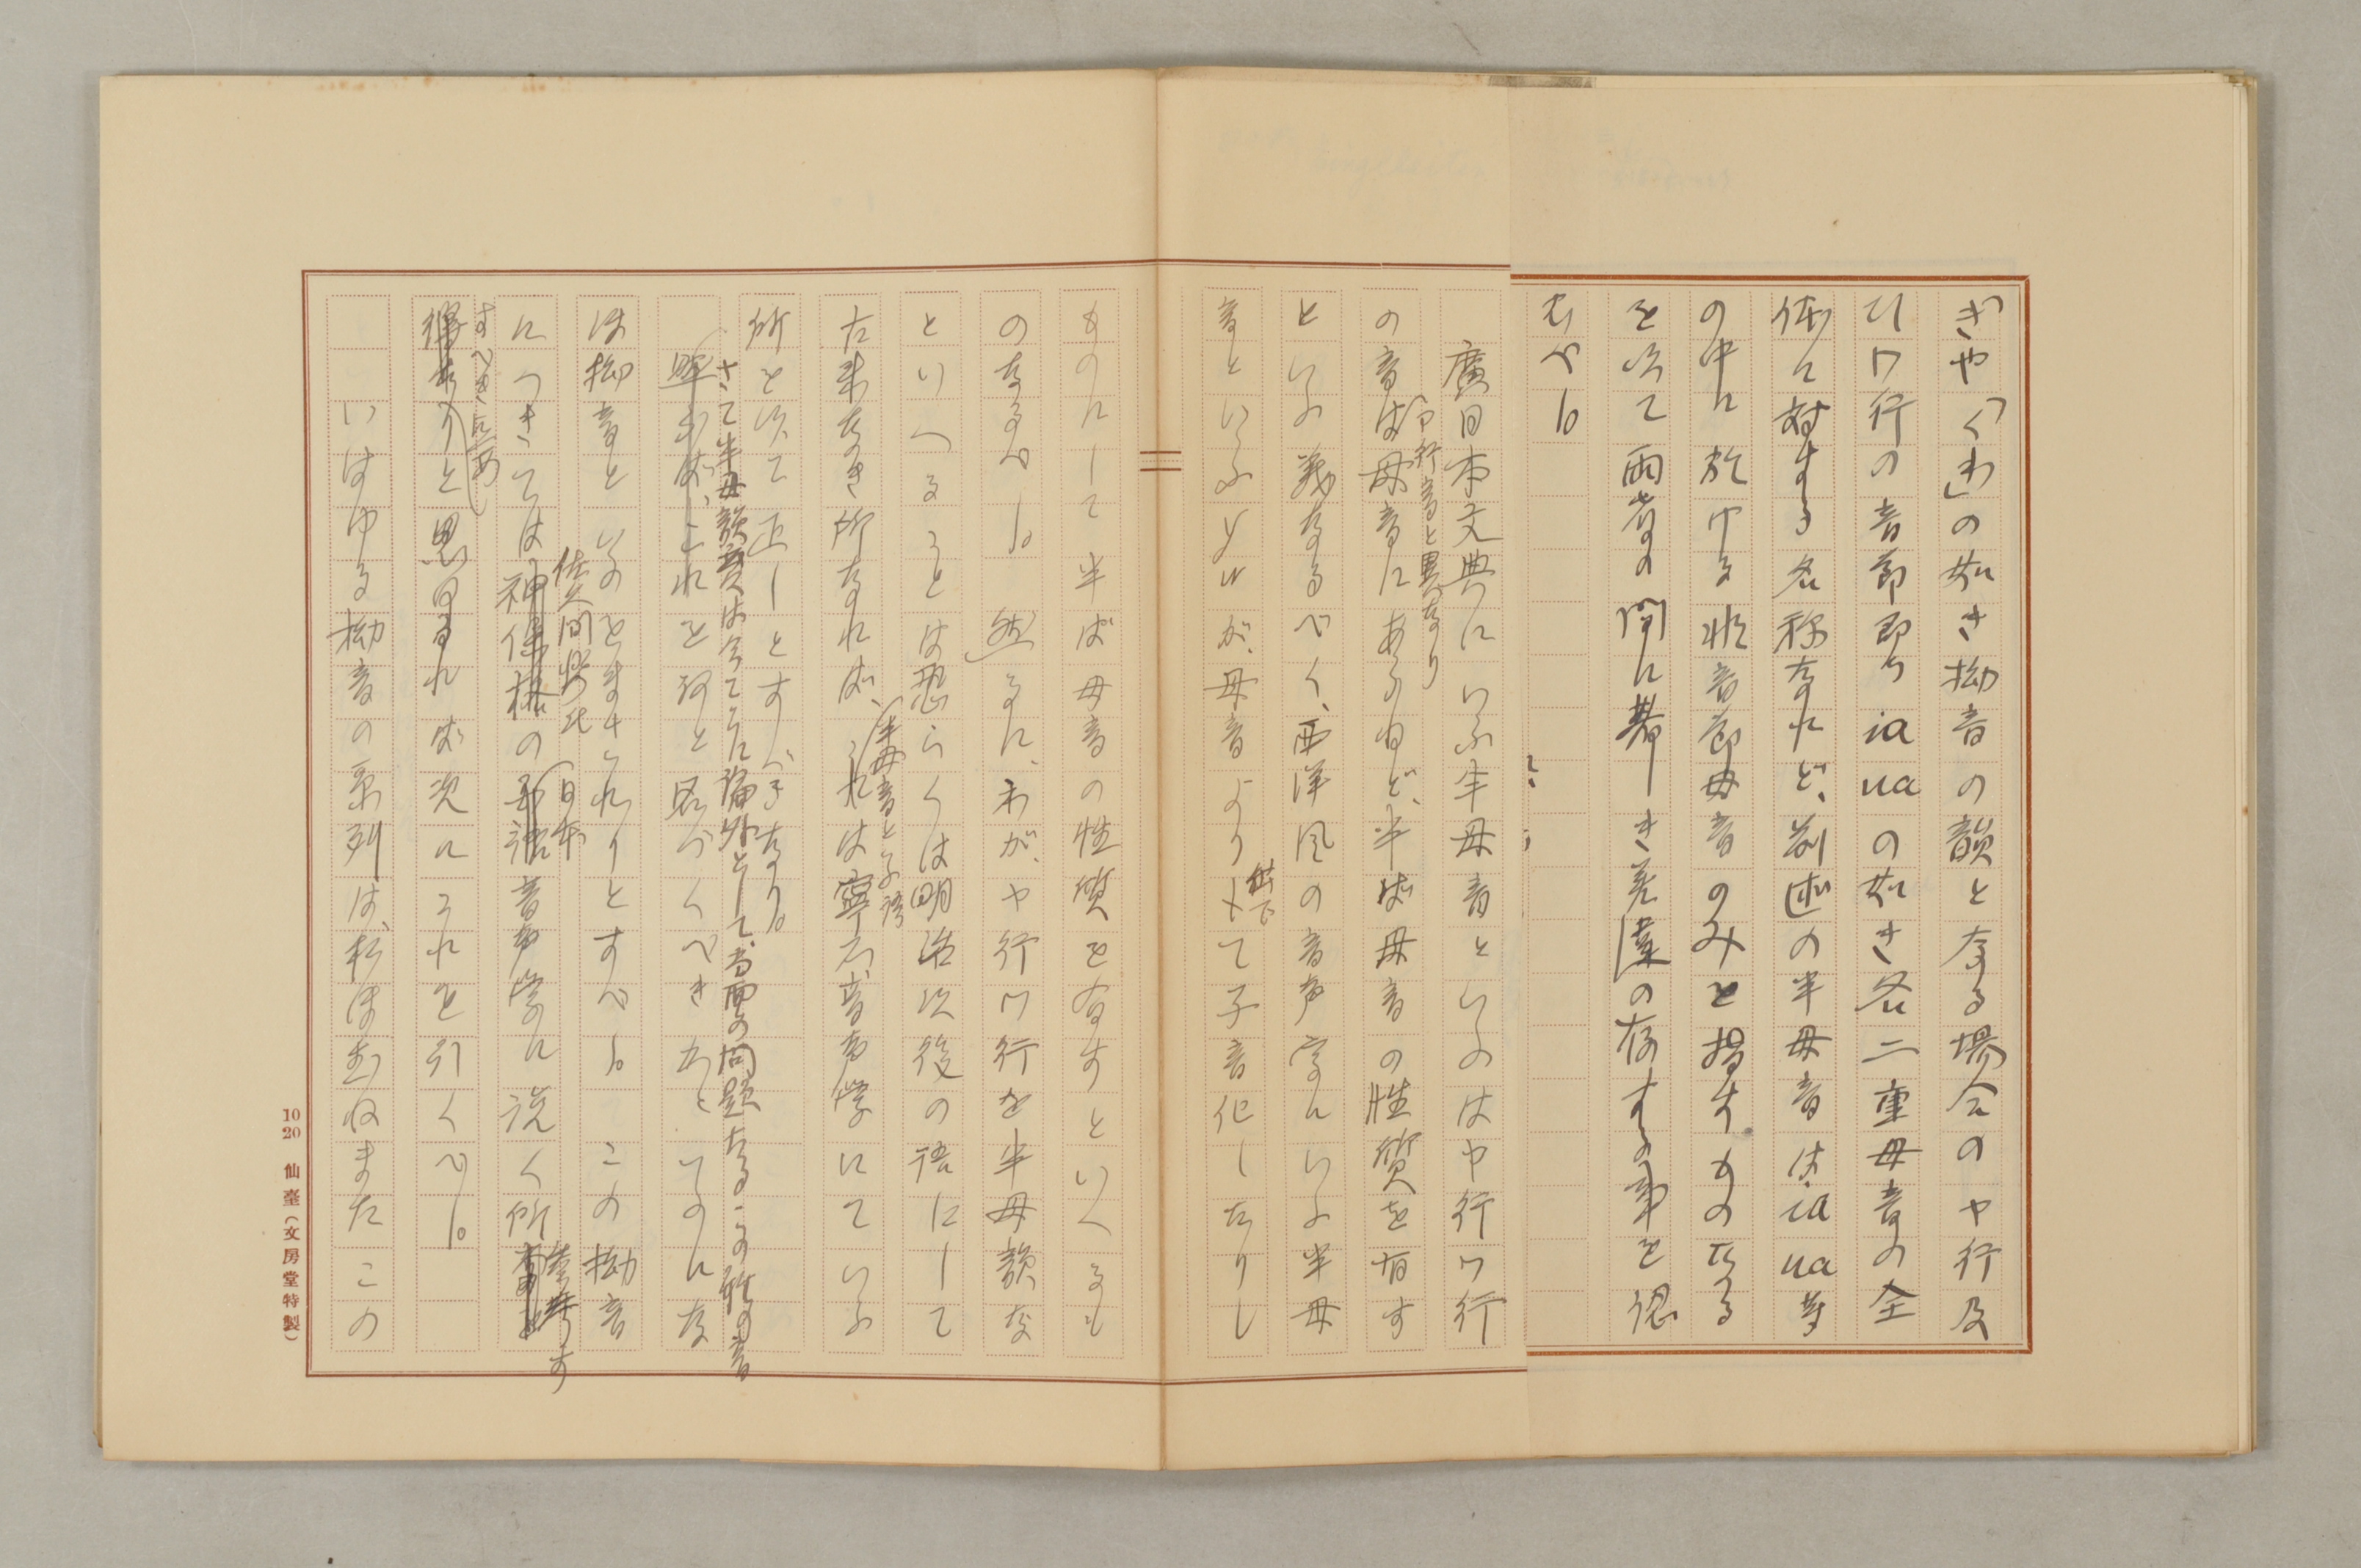 きや「くわ」の如き拗音の韻となる場合のヤ行及
びワ行の音節即ち ia ua の如き各二重母音の全
体に対する名称なれど、前述の半母音は ia ua 等
の中に於ける 音節母音のみを指すものなる
を以て両者の間に著しき差違の存する事を認
むべし。
廣日本文典にいふ半母音といふのはヤ行ワ行
の音は母音にあらねど、半ば母音の性質を有す
といふ義なるべく、西洋風の音声学にいふ半母
音といふに が、母音より して子音化したりし
ものにして半ば母音の性質を有すといへるも
のなるべし。然るに、わが、ヤ行ワ行を半母韻な
といへることは恐らくは明治以後の語にして
古来なき所なれば、これは寧ろ音声学にていふ
半母音と
所を以て正しとすべきなり。
さて半母韻 は今てこに論外として、当面の問題なるこの 音
これを何と名づくべきかといふにな
ほ拗音といふのをまされりとすべし。この拗音
につきては 佐久間 氏の 日本音声学に説く所 参考す
べき点あり と思はるれば次にこれを引くべし。
いはゆる拗音の系列は、私はまねまたこの
10 20 仙臺(文房堂特製)